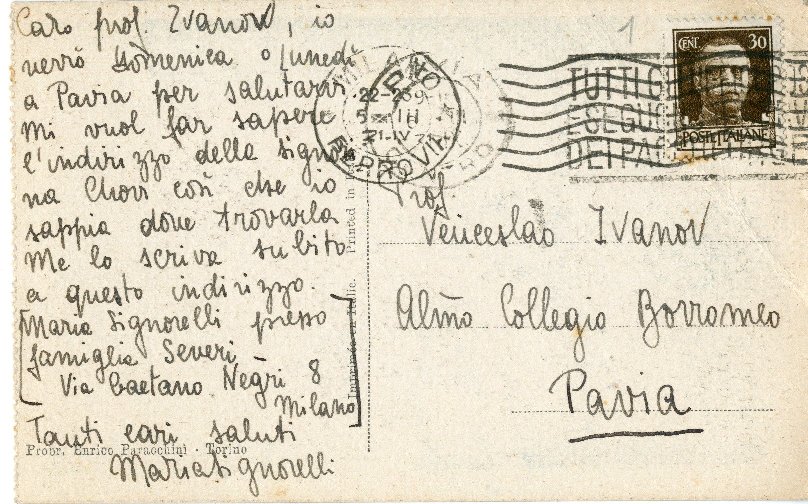 Caro prof. Ivanov, io
verrò domenica o lunedì
a Pavia per salutarvi.
Mi vuol far sapere
l'indirizzo della signo
na così che io
sappia dove trovarla
Me lo scriva subito
a questo indirizzo.
Maria Signorelli presso
famiglia Severi
Via Gaetano Negri 8
Milano
Tanti cari saluti
Maria Signorelli
Propr. Enrico Paraochini - Torino
Printed in
MILANO
22-23
FERROVIA
TUTTI
ESEGUO
DEI PA
CENT. 30
POSTE ITALIANE
Prof.
Venceslao Ivanov
Almo Collegio Borromeo
Pavia